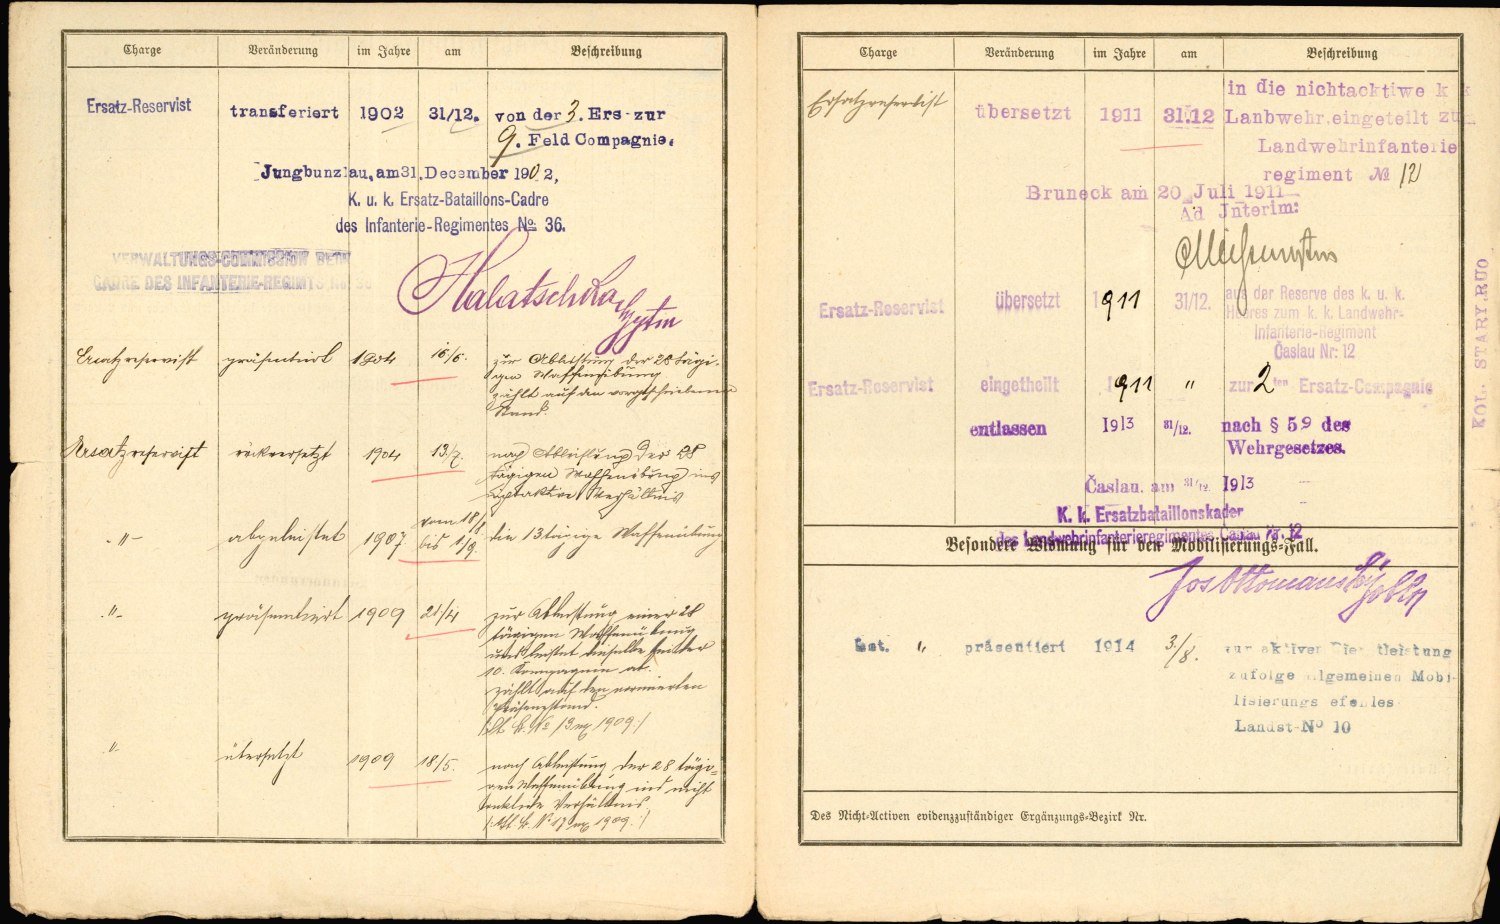 Charge Veränderung im Jahre am Beschreibung
Ersatz-Reservist transferiert 1902 31/12. von der 3. Ers-zur
9. Feld Compagnie.
Jungbunzlau, am 31. December 1902,
K. u. k. Ersatz-Bataillons-Cadre
des Infanterie-Regimentes No. 36.
VERWALTUNGS-COMMISSION BEIM
CADRE DES INFANTERIE-REGIMTS No. 36
Ersatzreservist präsentirt 1904 16/6. zur Ableistung der 28 tägi-
gen Waffenübung
zählt auf den vorgeschriebenen
Stand.
Ersatzreservist rückversetzt 1904 13/7. nach Ableistung der 28
tägigen Waffenübung ins
nichtaktive Verhältnis
-"- abgeleistet 1907 vom 18/8
bis 1/9. die 13 tägige Waffenübung
-"- präsentirt 1909 21/4 zur Ableistung einer 28
tägigen Waffenübung
und leistet dieselbe bei der
10. Kompagnie ab.
zählt auf den normierten
Präsenzstand.
" übersetzt 1909 18/5. nach Ableistung der 28 tägi-
gen Waffenübung ins nicht
aktive Verhältnis
Charge Veränderung im Jahre am Beschreibung
Ersatzreservist übersetzt 1911 31.12 in die nichtacktiwe k k
Lanbwehr.eingeteilt zum
Landwehrinfanterie
regiment № 12
Bruneck am 20 Juli 1911
Ad Jnterim:
Ersatz-Reservist übersetzt 1911 31/12. aus der Reserve des k. u. k.
Heeres zum k. k. Landwehr-
Infanterie-Regiment
Časlau Nr: 12
Ersatz-Reservist eingetheilt 1911 " zur 2ten Ersatz-Compagnie
entlassen 1913 31/12. nach § 59 des
Wehrgesetzes.
Časlau. am 31/12. 1913
K. k. Ersatzbataillonskader
des Landwehrinfanterieregimentes Časlau Nr. 12
Besondere Widmung für den Mobilisierungs-Fall.
" präsentiert 1914 3/8. zur aktiven Dienstleistung
zufolge allgemeinen Mobi-
lisierungs efehles
Landst-No 10
Des Nicht-Activen evidenzzuständiger Ergänzungs-Bezirk Nr.
KOL. STARY.RUO